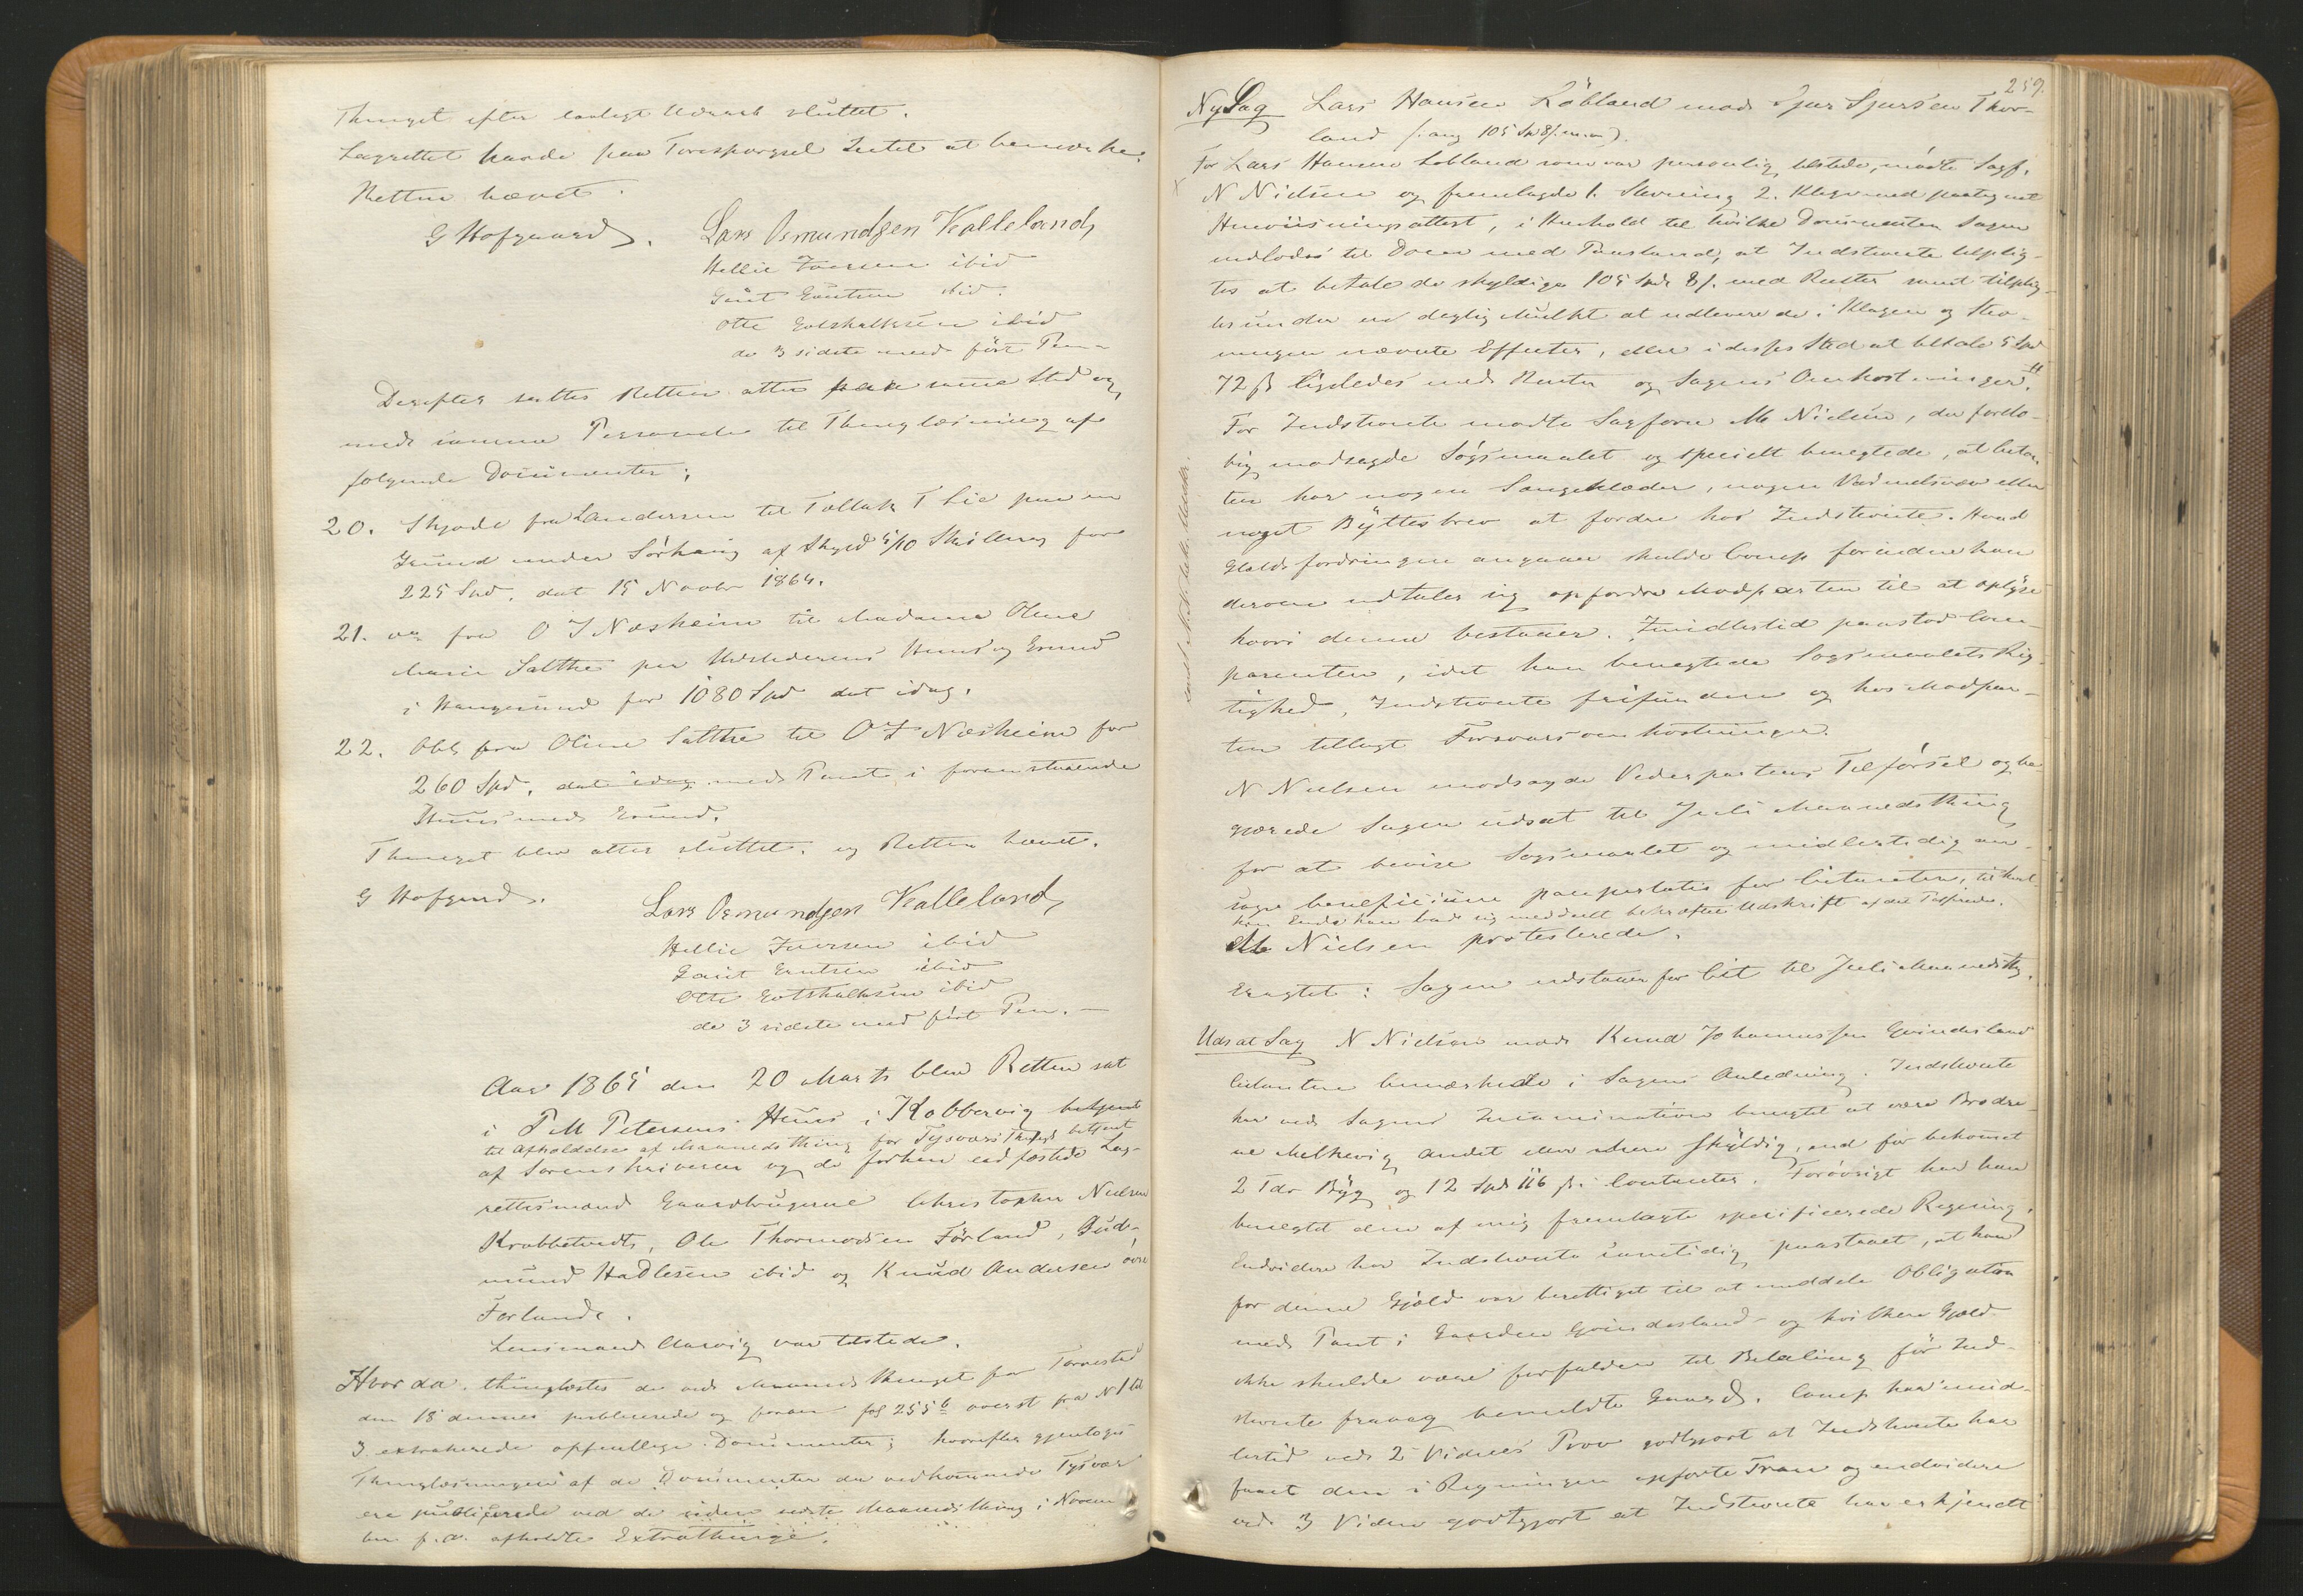 Thinget efter lovligt Udraab sluttet.
Lagrettet havde paa Forespørgsel Intet at bemærke.
Retten hævet.
G Hofgaard. Lars Osmundsen Kalleland,
Hellie Iversen ibid
Gaut Gautsen ibid.
Otte Gotskalksen ibid
de 3 sidste med ført Pen
Derefter sattes Retten atter paa samme Sted og
med samme Personale til Thinglæsning af
følgende Documenter:
20. Skjøde fra Landersen til Tollak T Lie paa en
Grund under Sørhaug af Skyld 5/10 Skilling for
225 Spd. dat 15 Novbr 1864.
21. do fra O J Næsheim til Madame Oline
Marie Salthe paa Udstederens Huus og Grund
i Haugesund for 1080 Spd dat idag.
22. Obl fra Oline Salthe til O J Næsheim for
260 Spd. dat idag med Pant i foranstaaende
Huus med Grund.
Thinget blev atter sluttet og Retten hævet.
G Hofgaard. Lars Osmundsen Kalleland,
Hellie Iversen ibid
Gaut Gautsen ibid
Otte Gotskalksen ibid
de 3 sidste med ført Pen.
Aar 1865 den 20 Marts blev Retten sat
i P M Petersens Huus i Kobbervig betjent
til Afholdelse af Maanedsthing for Tysvær Thinglag betjent
af Sorenskriveren og de forhen eedfæstede Lag-
rettesmænd Gaardbrugerne Christopher Nielsen
Krabbetvedt, Ole Thormodsen Førland, Gud-
mund Hadlesen ibid og Knud Andersen øvre
Førland.
Lensmand Aarvig var tilstede.
Hvorda thinglæstes de ved Maanedsthinget for Torvestad
den 18 dennes publicerede og foran fol 255 b øverst fra N 1 til
3 extraherede offentlige Documenter; hvorefter gjentoges
Thinglæsningen af de Documenter der vedkommende Tysvær
ere publicerede ved de siden sidste Maanedsthing i Novem-
ber f. A. afholdte Extrathinge.
259.
Ny Sag Lars Hansen Løbland mod Sjur Sjursen Thor-
land (: ang 105 Spd 8 s. m. m.)
For Lars Hansen Løbland som var personlig tilstede, mødte Sagf.
N Nielsen og fremlagde 1. Stevning 2. Klage med paategnet
Henviisningsattest, i Henhold til hvilke Documenter Sagen
indlodes til Doom med Paastand, at Indstevnte tilplig-
tes at betale de skyldige 105 Spd 8 s. med Renter samt tilplig-
tes under en daglig Mulkt at udlevere de i Klagen og Stev-
ningen nævnte Effecter, eller i disses Sted at betale 5 Spd
72 s ligeledes med Renter og Sagens Omkostninger.
For Indstevnte mødte Sagfører M Nielsen, der forelø-
big modsagde Søgsmaalet og specielt benegtede, at Citan-
ten har nogen Sengeklæder, nogen Vadmelsvæv eller
noget Byttesbrev at fordre hos Indstevnte. Hvad
Gjeldsfordringen angaaer skulde Comp forinden han
derom udtaler sig opfordre Modparten til at oplyse
hvori denne bestaaer. Imidlertid paastod Com-
parenten, idet han benegtede Søgsmaalets Rig-
tighed, Indstevnte frifunden og hos Modpar-
ten tillagt Forsvarsomkostninger.
N Nielsen modsagde Vederpartens Tilførsel og be-
gjærede Sagen udsat til Juli Maanedsthing
for at bevise Søgsmaalet og midlertidig an-
søge beneficium paupertatis for Citanten, til hvil-
ken Ende han bad sig meddeelt bekræftet Udskrift af det Tilførte.
M Nielsen protesterede.
Eragtet: Sagen udstaaer for Cit til Juli Maanedsthg.
Udsat Sag N Nielsen mod Knud Johannessen Gvindesland
Citanten bemærkede i Sagens Anledning. Indstevnte
har ved Sagens Incamination benegtet at være Brødre-
ne Melkevig andet eller mere skyldig, end for bekommet
2 Tdr Byg og 12 Spd 116 s. Contanter. Forøvrigt har han
benegtet den af mig fremlagte specificerede Regning.
Endvidere har Indstevnte samtidig paastaaet, at han
for denne Gjæld var berettiget til at meddele Obligation
med Pant i Gaarden Gvindesland og hvilken Gjæld
ikke skulde være forfalden til Betaling før Ind-
stevnte fraveg bemeldte Gaard. Comp har imid-
lertid ved 2 Vidners Prov godtgjort at Indstevnte har
faaet den i Regningen opførte Tran og endvidere
ved 3 Vidner godtgjort at Indstevnte har erkjendt